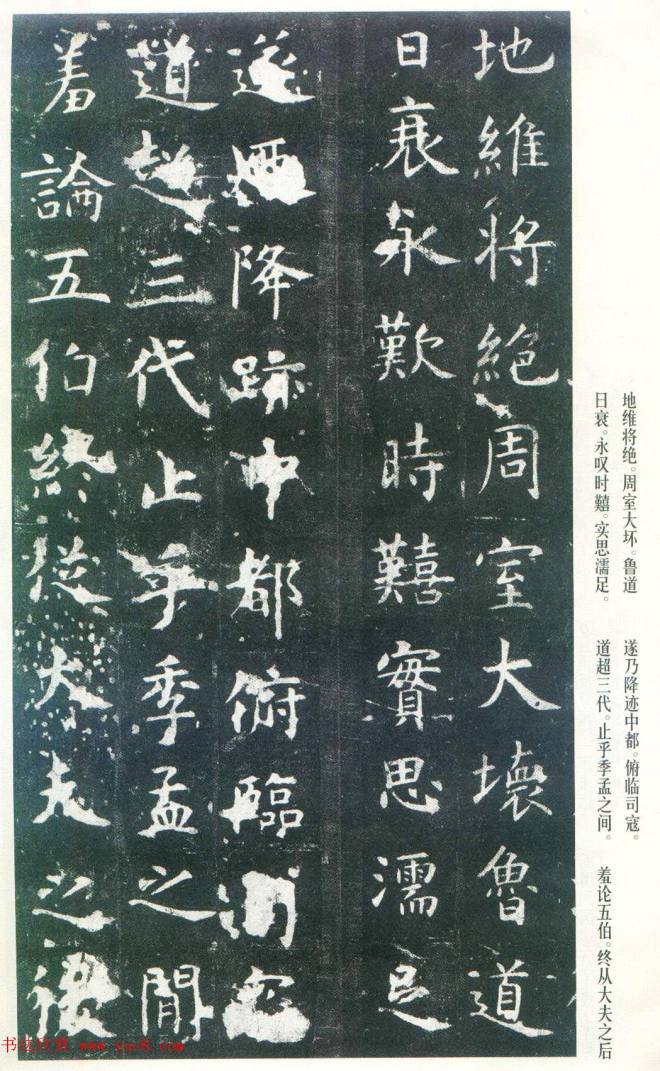 地維將絕周室大壞魯道
日衰永歎時囏實思濡足
遂迺降跡中都俯臨司寇
道超三代止乎季孟之間
羞論五伯終從大夫之後
地维将绝。周室大坏。鲁道
日衰。永叹时囏。实思濡足。
遂乃降迹中都。俯临司寇。
道超三代。止乎季孟之间。
羞论五伯。终从大夫之后
书法欣赏 www.yac8.com